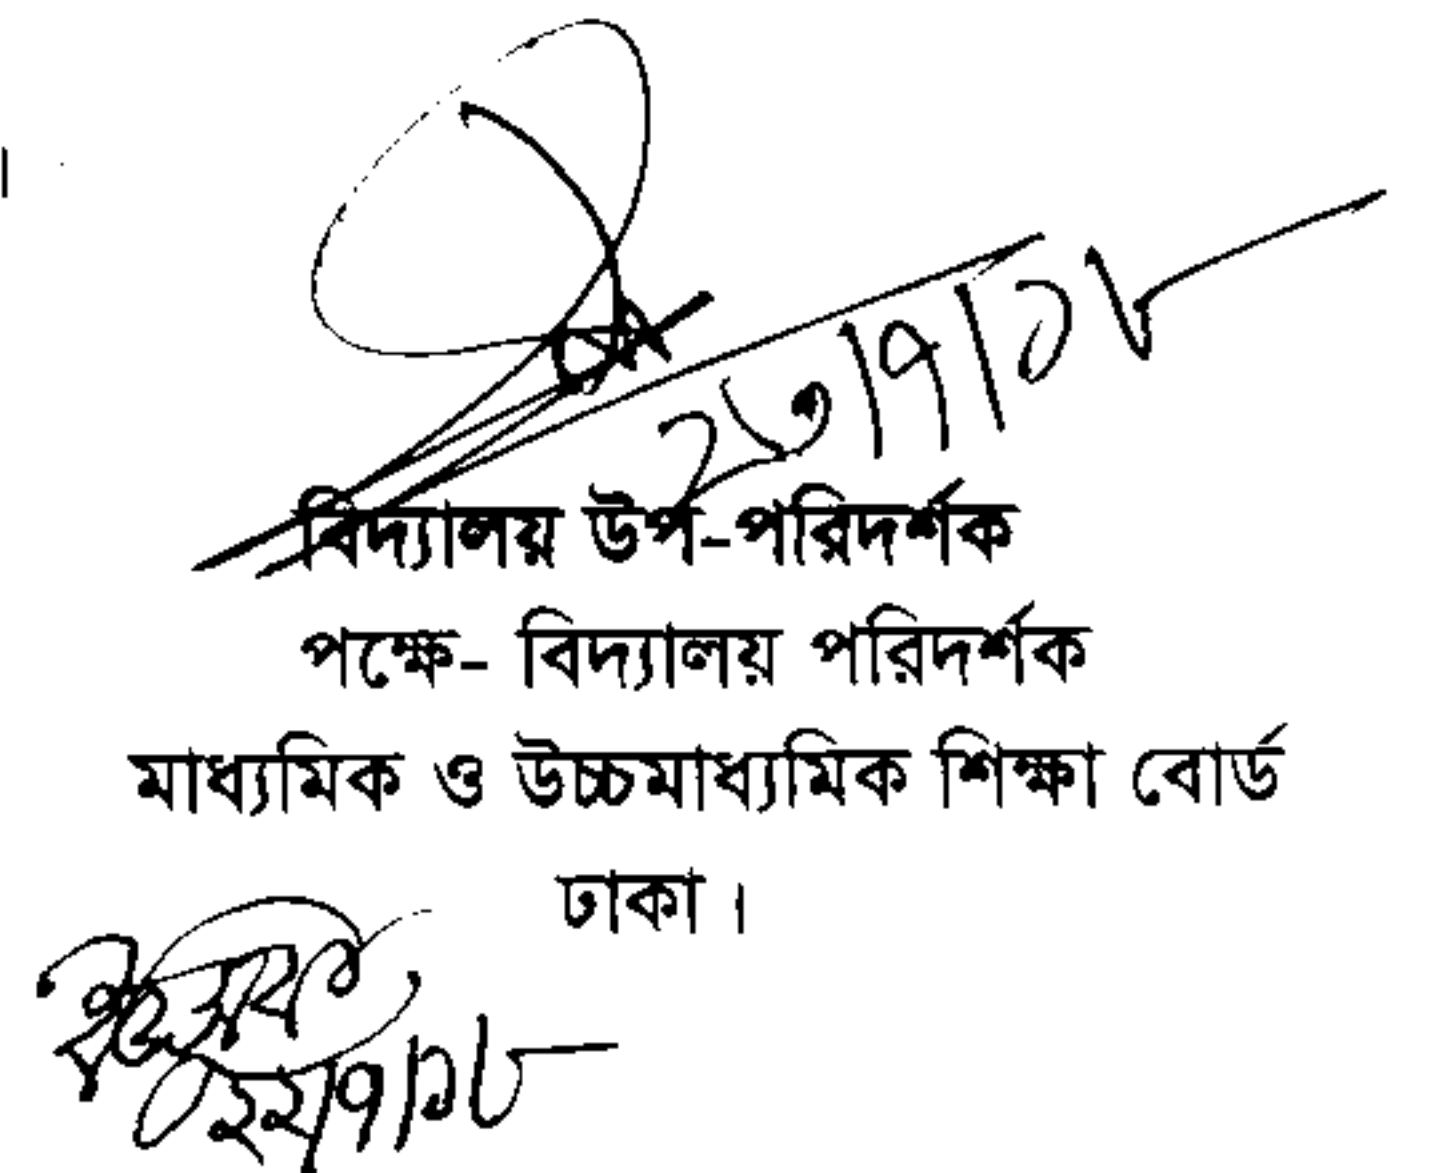 ২৩/৭/০৮
বিদ্যালয় উপ-পরিদর্শক
পক্ষে- বিদ্যালয় পরিদর্শক
মাধ্যমিক ও উচ্চমাধ্যমিক শিক্ষা বোর্ড
ঢাকা।
২২/৭/০৮